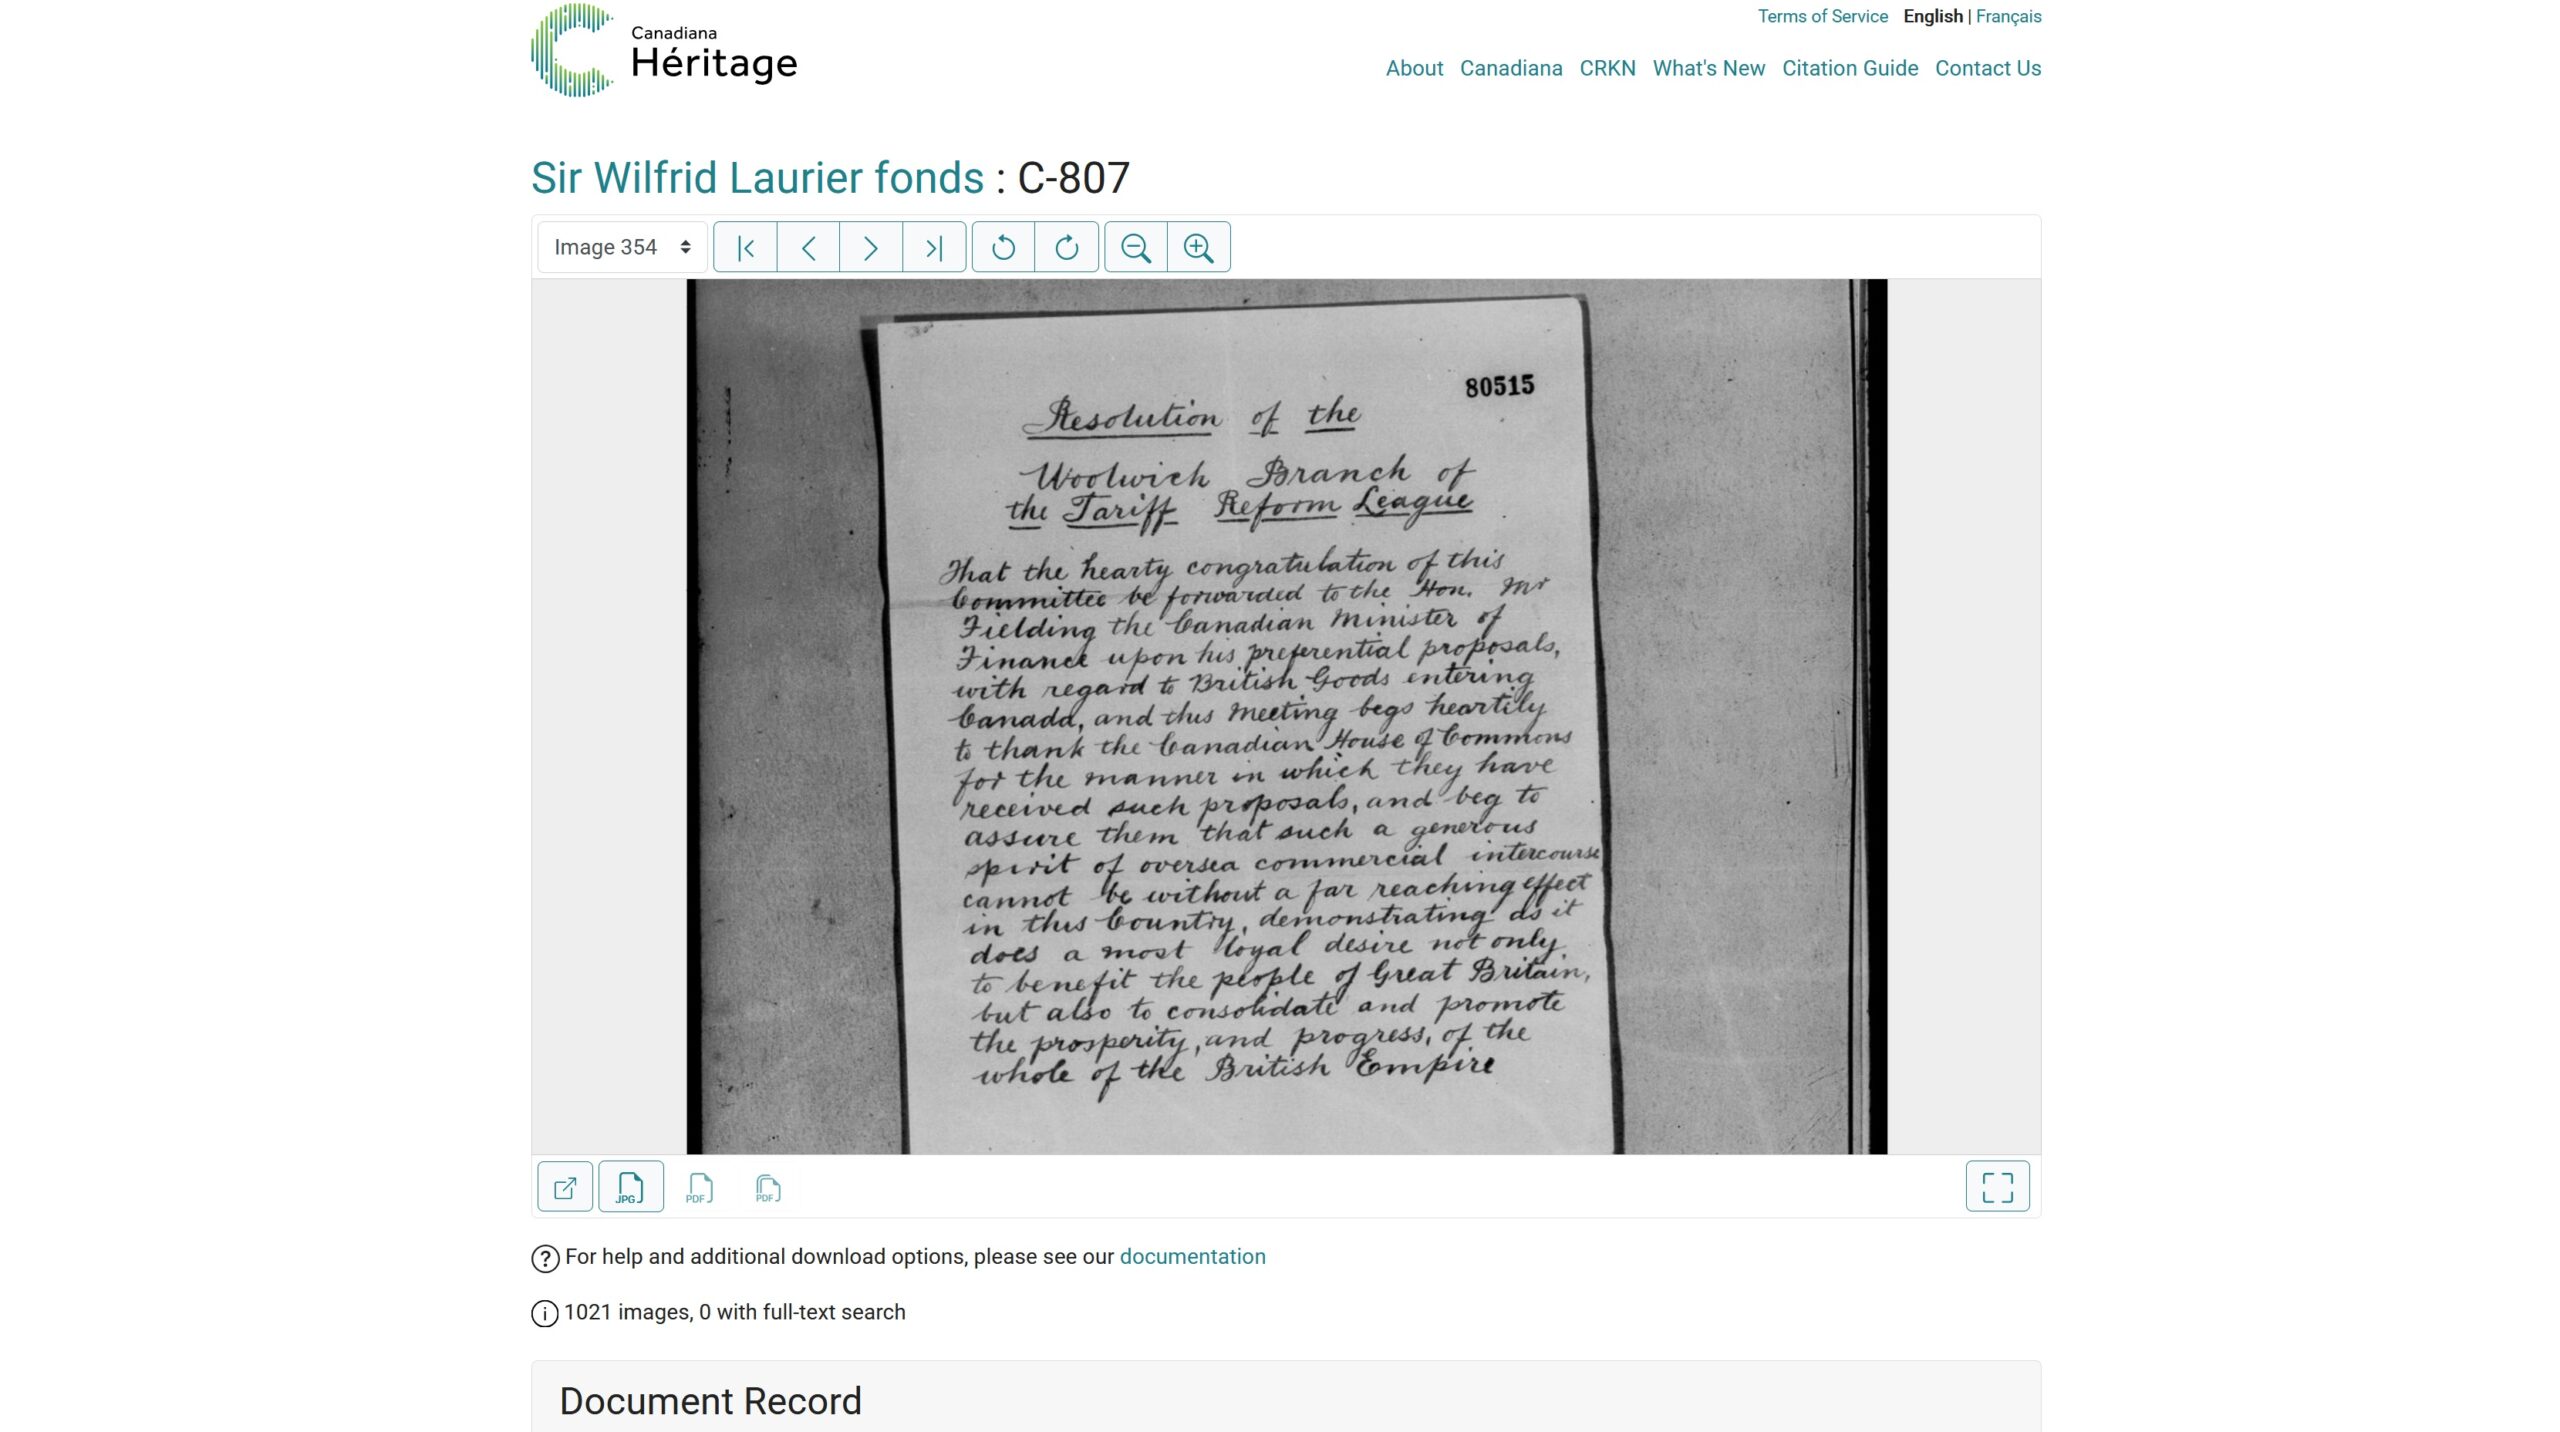 Canadiana
Héritage
Terms of Service English | Français
About Canadiana CRKN What's New Citation Guide Contact Us
Sir Wilfrid Laurier fonds : C-807
Image 354
80515
Resolution of the
Woolwich Branch of
the Tariff Reform League
That the hearty congratulation of this
Committee be forwarded to the Hon. Mr
Fielding the Canadian Minister of
Finance upon his preferential proposals,
with regard to British Goods entering
Canada, and this Meeting begs heartily
to thank the Canadian House of Commons
for the manner in which they have
received such proposals, and beg to
assure them that such a generous
spirit of oversea commercial intercourse
cannot be without a far reaching effect
in this Country, demonstrating as it
does a most loyal desire not only
to benefit the people of Great Britain,
but also to consolidate and promote
the prosperity, and progress, of the
whole of the British Empire
JPG PDF PDF
For help and additional download options, please see our documentation
1021 images, 0 with full-text search
Document Record